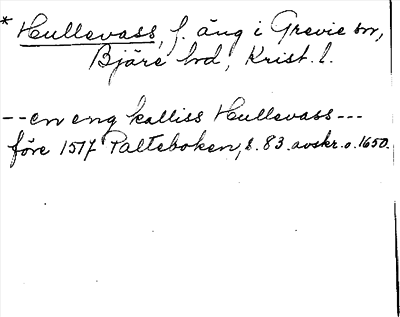 * Hullevass, f. äng i Grevie sn,
Bjäre hd, Krist. l.
--en eng kalliss Hullevass---
före 1517 Palteboken, s. 83. avskr. o. 1650.